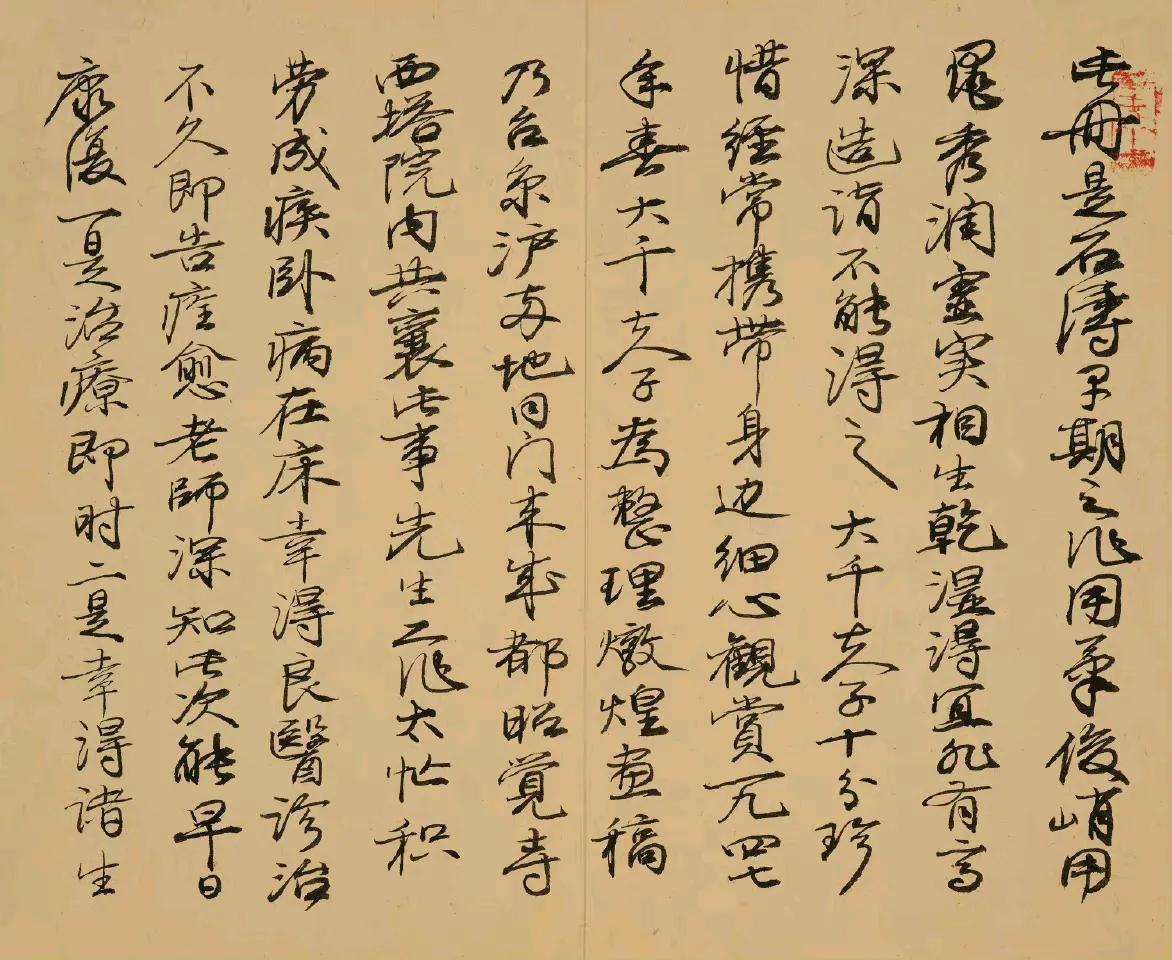 此冊是石濤早期之作用笔俊峭用
墨秀润虚实相生乾湿得宜非有高
深造诣不能得之 大千夫子十分珍
惜经常携带身边细心觀賞一九四七
年春大千夫子為整理燉煌畫稿
乃召京沪两地同门来成都昭觉寺
西塔院内共襄此事先生工作太忙积
劳成疾卧病在床幸得良醫诊治
不久即告痊愈老師深知此次能早日
康復一是治療即时二是幸得诸生